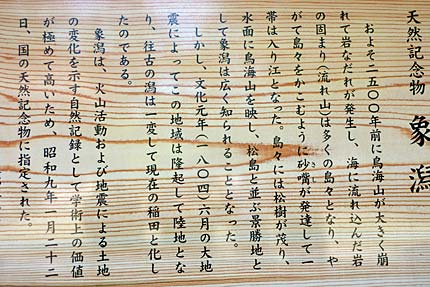 天然記念物　象潟
およそ二五〇〇年前に鳥海山が大きく崩
れて岩なだれが発生し、海に流れ込んだ岩
の固まり（流れ山）は多くの島々となり、や
がて島々をかこむように砂嘴が発達して一
帯は入り江となった。島々には松樹が茂り、
水面に鳥海山を映し、松島と並ぶ景勝地と
して象潟は広く知られることとなった。
しかし、文化元年（一八〇四）六月の大地
震によってこの地域は隆起して陸地とな
り、往古の潟は一変して現在の稲田と化し
たのである。
象潟は、火山活動および地震による土地
の変化を示す自然記録として学術上の価値
が極めて高いため、昭和九年一月二十二
日、国の天然記念物に指定された。